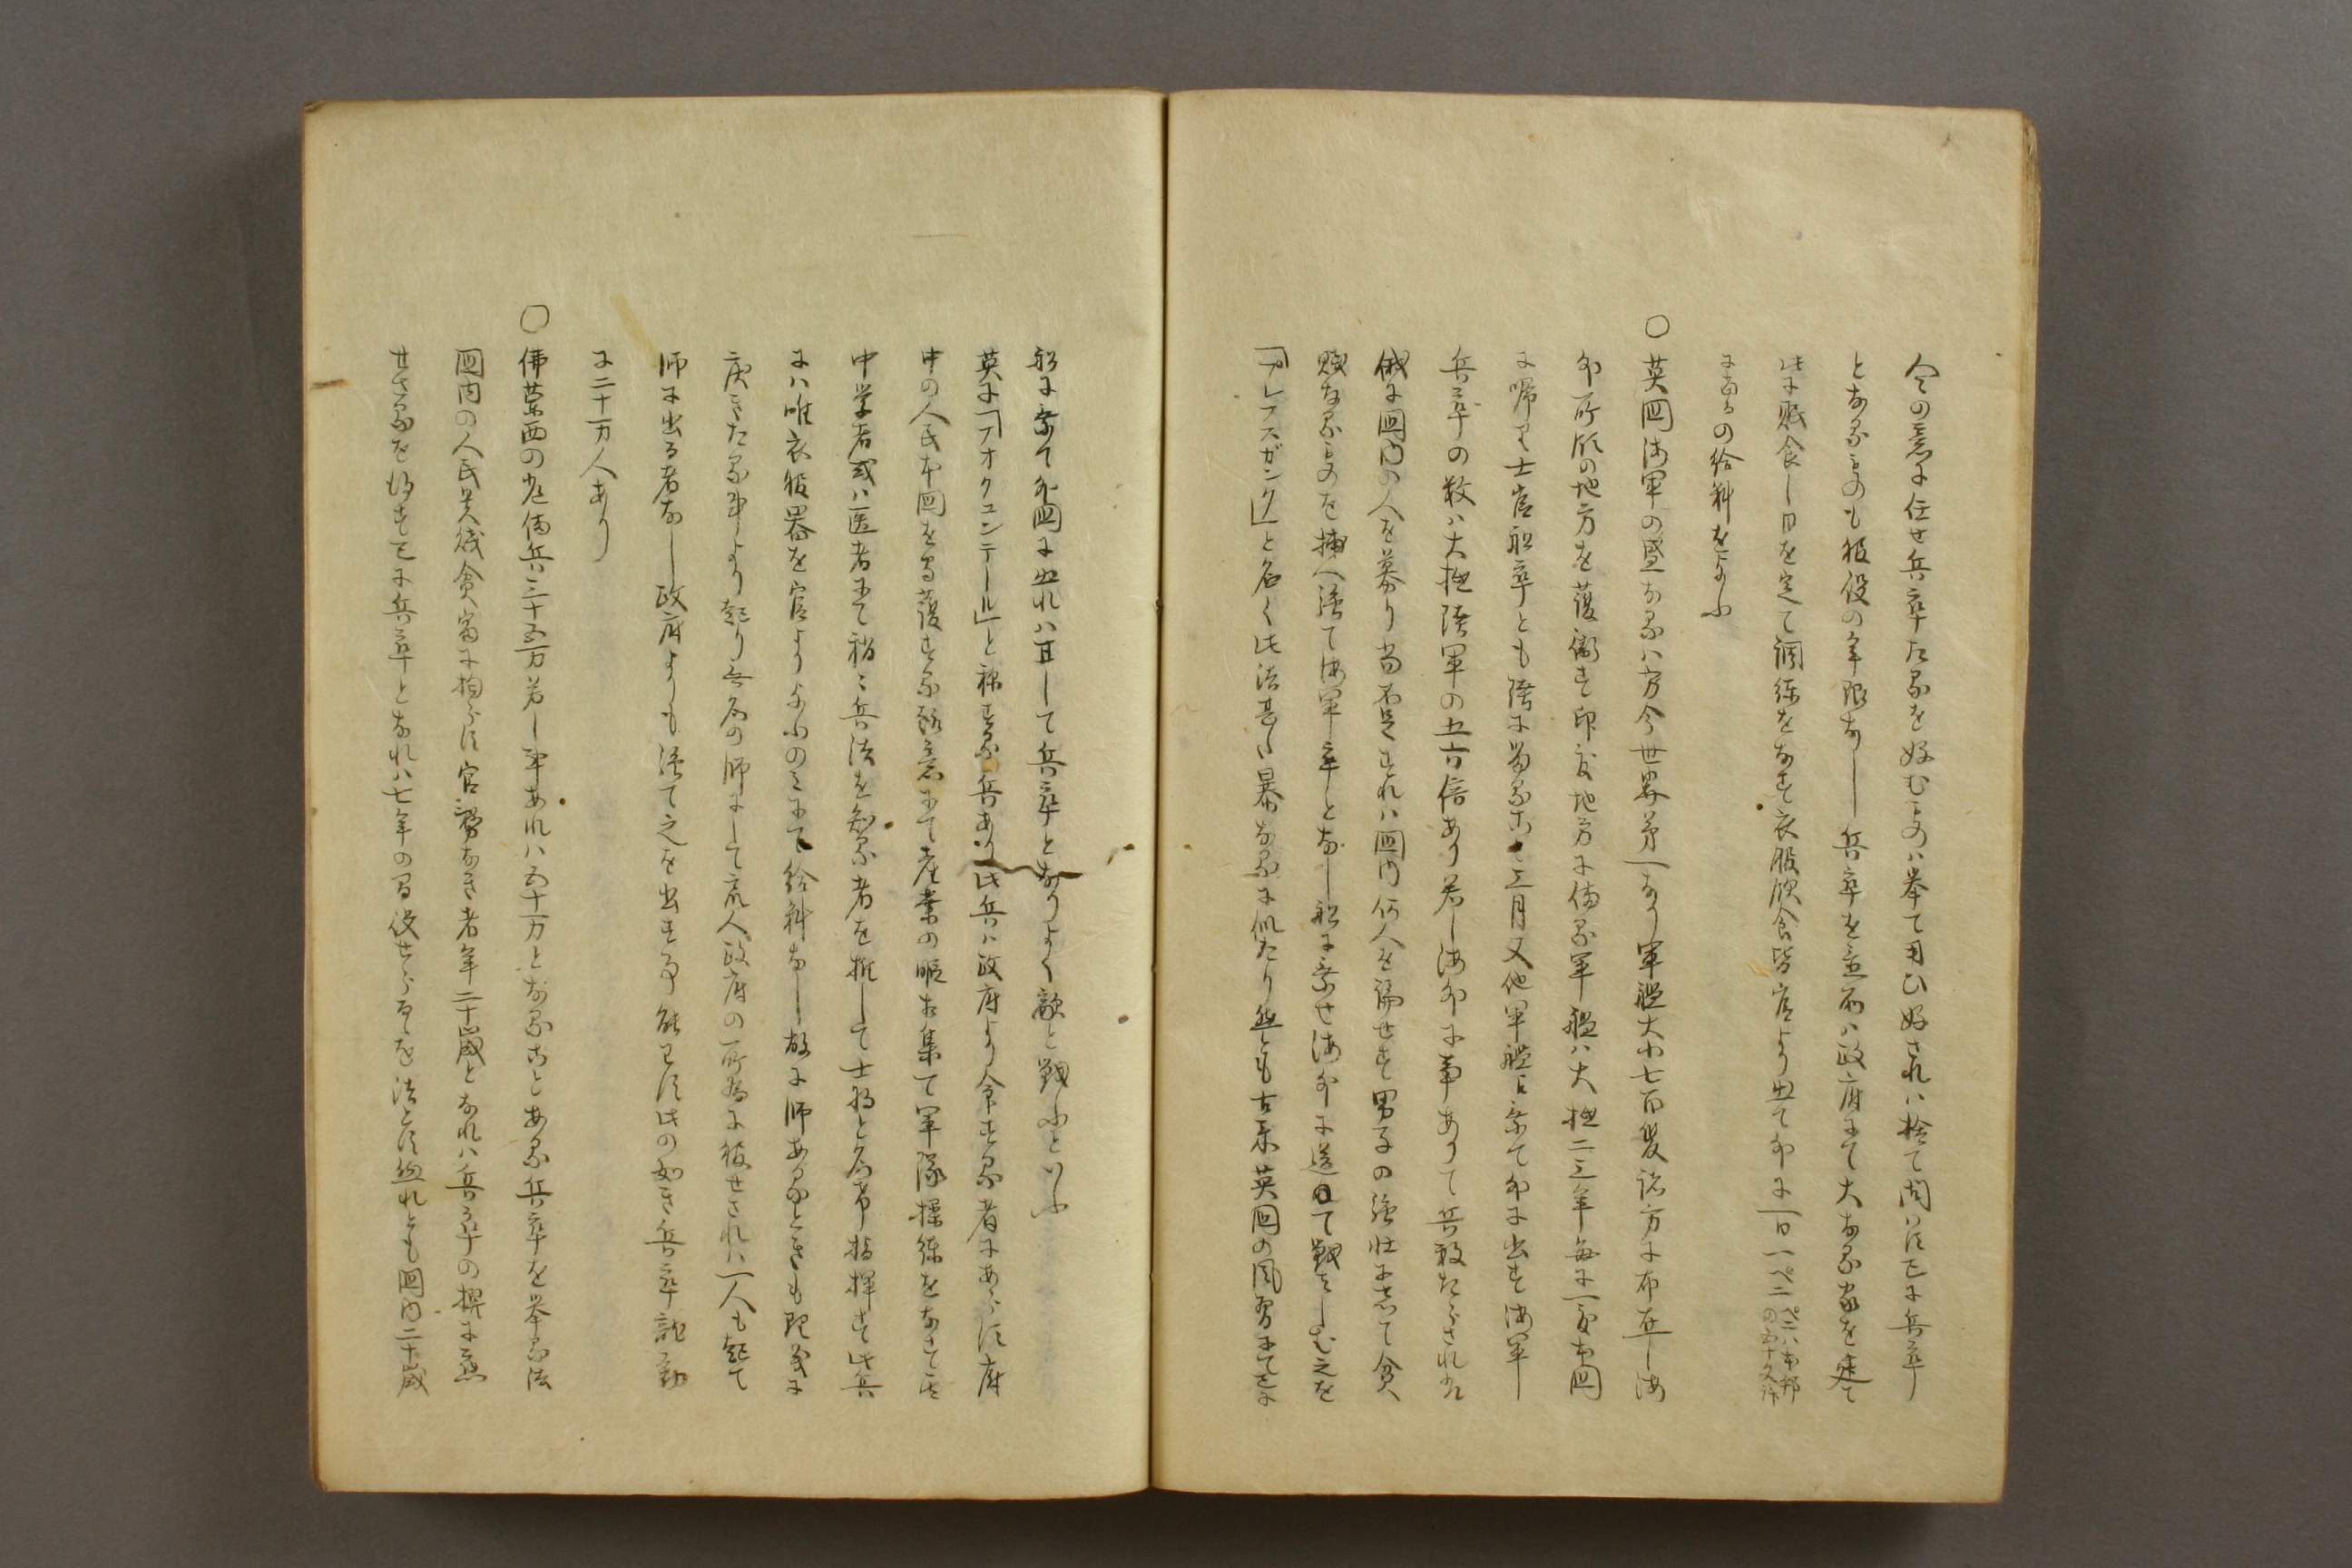 人の意に任せ兵卒たるを好むものハ挙て用ひ好されハ捨て問ハす已に兵卒
となるものも役の年限なし兵卒を置所ハ政府にて大なる家を建て
此に賑食し日を定て調練をなさす衣服飲食皆官より出て外に一日一ペニー
ペニハ本邦
の五十文许
にあるの給料を与ふ
○英国海軍の盛なるハ方今世界第一なり軍艦大小七百艘諸方に布在し海
外所領の地方を護衛す印度地方に備る軍艦ハ大抵二三年毎に一度本国
に帰り士官船卒とも陸に留ること三月又他軍艦に乗て外に出す海軍
兵卒の数ハ大抵陸軍の五六倍あり若し海外に事ありて兵数たらされハ
俄に国内の人を募り尚不足すれハ国内何人を論せす男子の強壮にして貧
賤なるものを捕へ強て海軍卒となし船に乗せ海外に送りて戦ハしむ之を
「プレスガング」と名く此法甚た暴なるに似たり然とも古来英国の風習にて已に
船に乗て外国に出れハ正して兵卒となりよく敵と戦ふといふ
英に「フオルユンテール」と称する兵あり此兵ハ政府より令する者にあらす府
中の人民本国を守護する趣意にて産業の暇お集て軍隊操練をなさす其
中学者或ハ医者にて稍々兵法を知る者を推して士将と為常指揮す此兵
にハ唯衣服器を官より与ふのミにて給料なし故に師あるときも現義に
戻きたる事より起り無名の師にして衆人政府の所為に服せされハ一人も起て
師に出る者なし政府よりも強て之を出す事能ハす此の如き兵卒部勤
に二十万人あり
○佛蘭西の常備兵三十五万若し事あれハ五十万となることある兵卒を挙る法
国内の人民貴賤貧富に拘らす官務なき者年二十歳となれハ兵卒の撰に應
せさるを得す已に兵卒となれハ七年の間役せらるゝを法とす然れとも国内二十歳